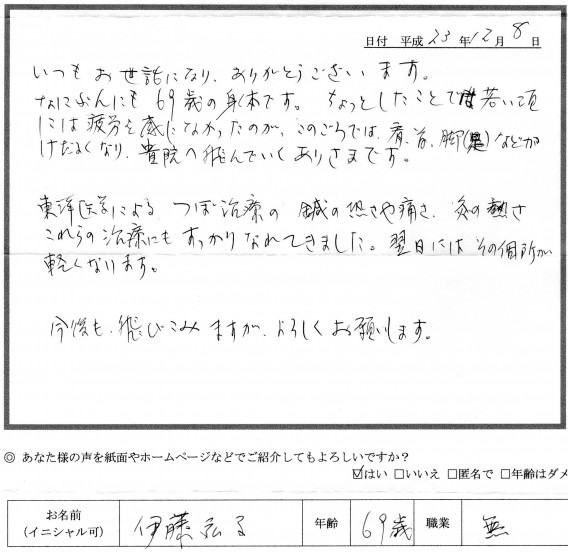 日付 平成 23 年 12 月 8 日
いつもお世話になり、ありがとうございます。
なにぶんにも 69歳の身体です。 ちょっとしたことでは若い頃
には疲労を感じなかったのが、このごろでは、肩、首、脚(足)などが
けだるくなり、貴院へ飛んでいくありさまです。
東洋医学による つぼ治療の 鍼の恐さや痛さ、灸の熱さ
これらの治療にもすっかりなれてきました。翌日にはその個所が
軽くなります。
今後も、飛びこみますが、よろしくお願いします。
◎ あなた様の声を紙面やホームページなどでご紹介してもよろしいですか?
☑はい □いいえ □匿名で □年齢はダメ
お名前 伊藤 年齢 69歳 職業 無
(イニシャル可)